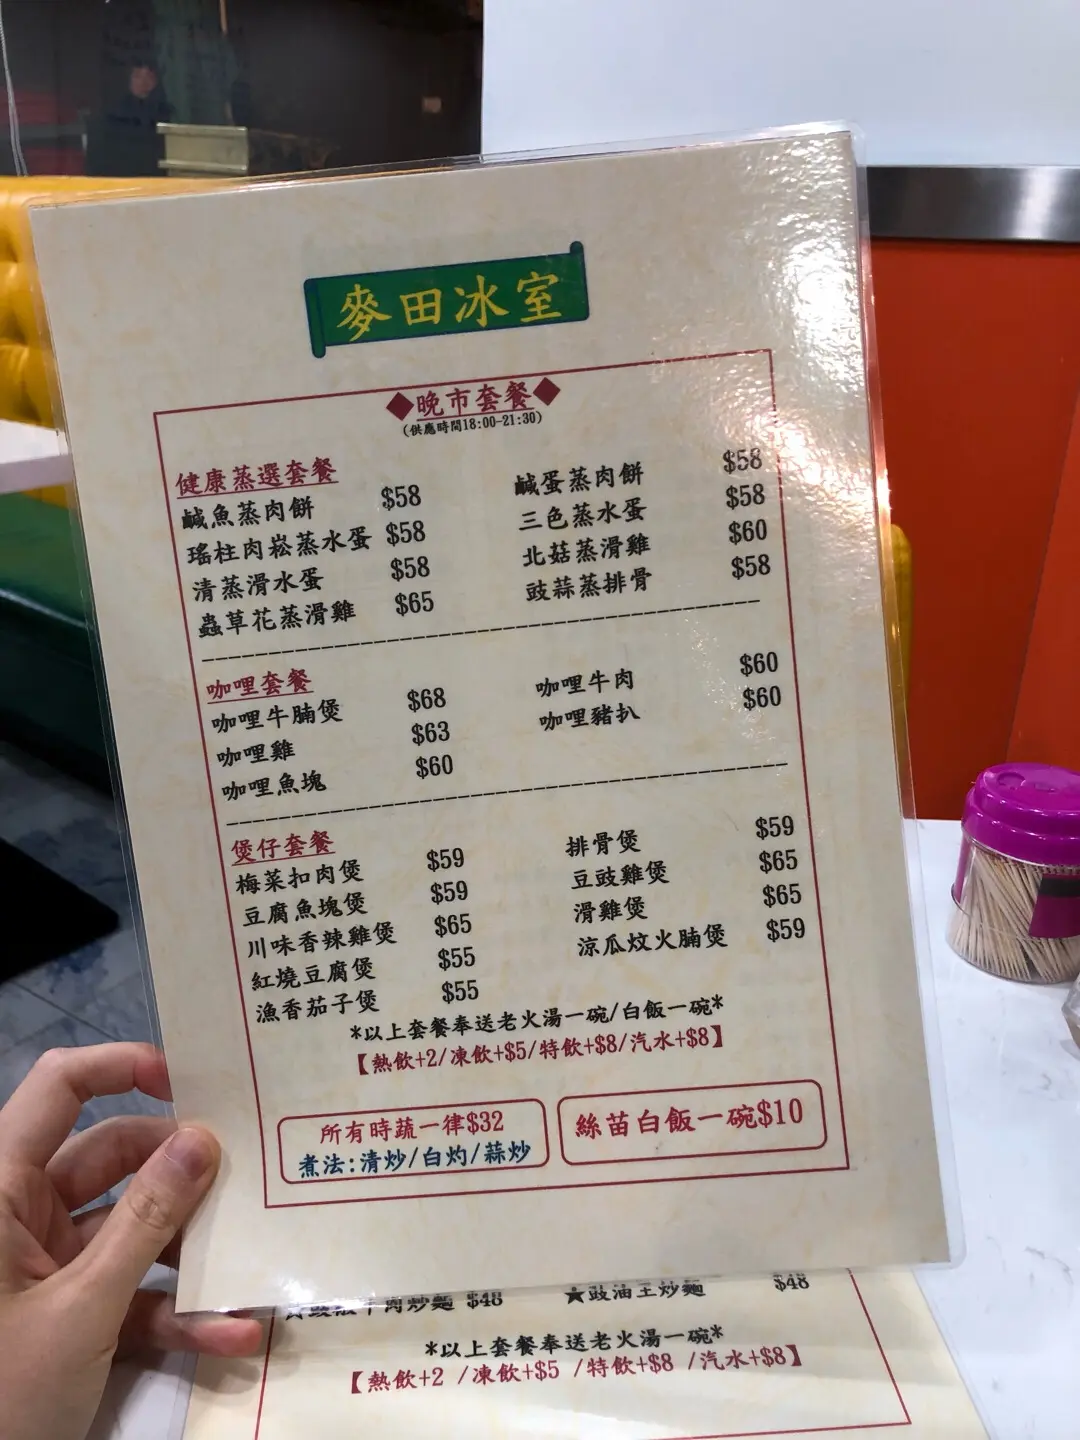 麥田冰室
◆晚市套餐◆
(供應時間18:00-21:30)
健康蒸選套餐
鹹魚蒸肉餅 $58 鹹蛋蒸肉餅 $58
瑤柱肉崧蒸水蛋 $58 三色蒸水蛋 $58
清蒸滑水蛋 $58 北菇蒸滑雞 $60
蟲草花蒸滑雞 $65 豉蒜蒸排骨 $58
咖哩套餐
咖哩牛腩煲 $68 咖哩牛肉 $60
咖哩雞 $63 咖哩豬扒 $60
咖哩魚塊 $60
煲仔套餐
梅菜扣肉煲 $59 排骨煲 $59
豆腐魚塊煲 $59 豆豉雞煲 $65
川味香辣雞煲 $65 滑雞煲 $65
紅燒豆腐煲 $55 涼瓜炆火腩煲 $59
漁香茄子煲 $55
*以上套餐奉送老火湯一碗/白飯一碗*
【熱飲+2/凍飲+$5/特飲+$8/汽水+$8】
所有時蔬一律$32
煮法:清炒/白灼/蒜炒
絲苗白飯一碗$10
牛肉炒麵 $48 ★豉油王炒麵 $48
*以上套餐奉送老火湯一碗*
【熱飲+2 /凍飲+$5 /特飲+$8 /汽水+$8】